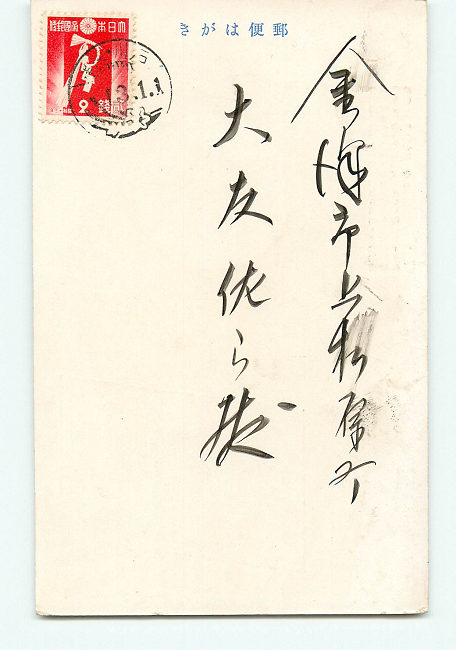 郵便はがき
大日本帝國郵便
2銭
3.1.1
金澤市上松原町
大友佐ら様